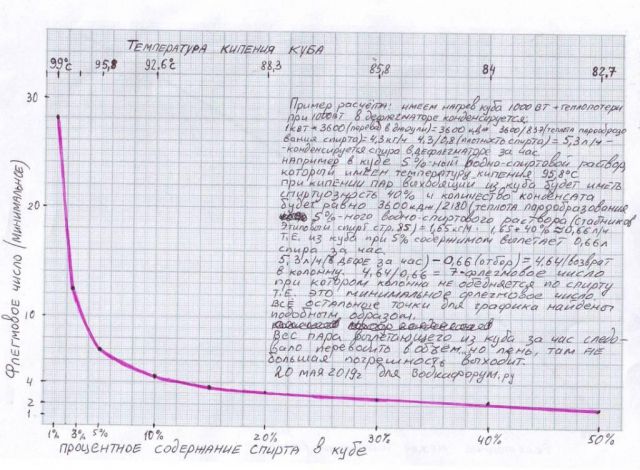 ТЕМПЕРАТУРА КИПЕНИЯ КУБА
99°С 95,8 92,6°С 88,3 85,8 84 82,7
ФЛЕГМОВОЕ ЧИСЛО (МИНИМАЛЬНОЕ)
30
20
10
4
2
1
Пример расчёта: имеем нагрев куба 1000 Вт + теплопотери
при 1000Вт в дефлегматоре конденсируется:
1кВт * 3600 (перевод в джоули) = 3600 кДж 3600/837 (теплота парообразо
вания спирта) = 4,3 кг/ч 4,3/0,8 (плотность спирта) = 5,3 л/ч -
- конденсируется спирта в дефлегматоре за час.
например в кубе 5%-ный водно-спиртовой раствор,
который имеет температуру кипения 95,8°С
при кипении пар выходящий из куба будет иметь
спиртуозность 40% и количество конденсата
будет равно 3600кДж/2180 (теплота парообразования
5%-ного водно-спиртового раствора (Стабников
Этиловый спирт стр. 85) = 1,65 кг/ч. 1,65*40% ≈ 0,66 л/ч
Т.Е. из куба при 5% содержимом вылетает 0,66л
спирта за час.
5,3 л/ч (в ДЕФЕ за час) – 0,66 (отбор) = 4.64 (возврат
в колонну. 4.64/0.66 = 7 - флегмовое число
при котором колонна не обедняется по спирту
Т.Е. это минимальное флегмовое число.
ВСЕ остальные точки для графика найдены
подобным образом.
Вес пара вылетающего из куба за час следо-
вало переводить в объем, но лень, там не
большая погрешность выходит.
20 мая 2019г для Водкафорум.ру
1% 3% 5% 10% 20% 30% 40% 50%
процентное содержание спирта в кубе